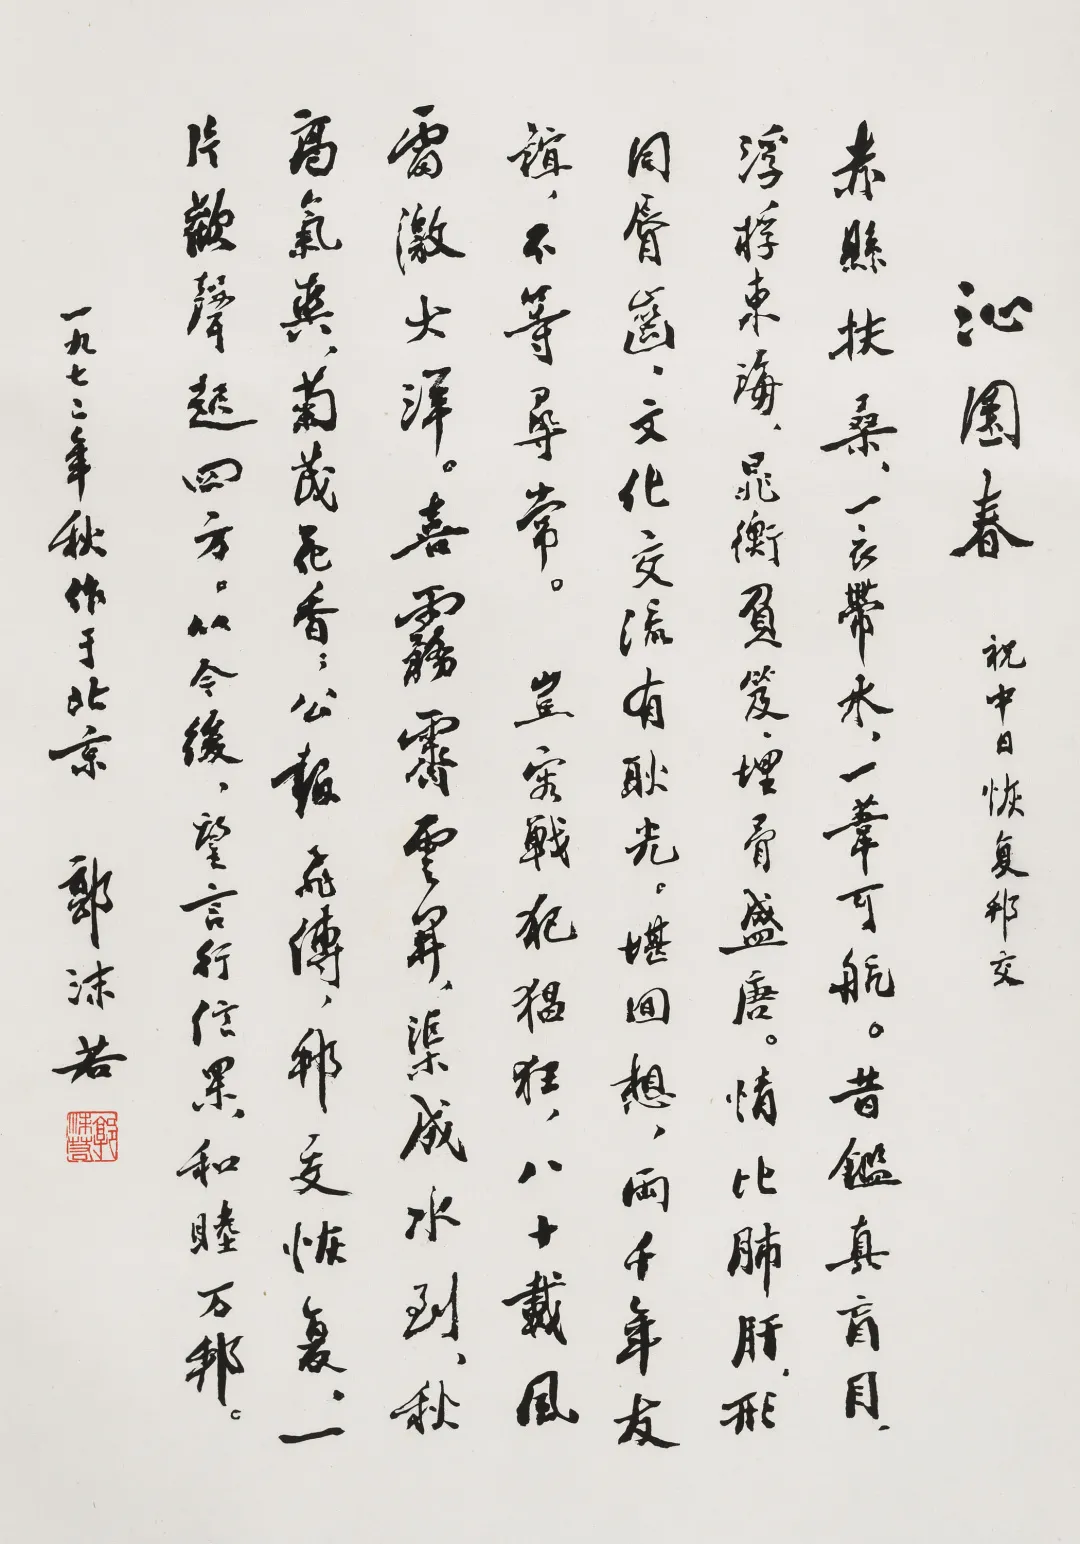 沁園春 祝中日恢复邦交
赤縣扶桑、一衣帶水、一葦可航。昔鑑真盲目、
浮桴東海、晁衡負笈、埋骨盛唐。情比肺肝、形
同脣齒、文化交流有耿光。堪回想、兩千年友
誼、不等尋常。 豈容戰犯猖狂、八十載風
雷激大洋。喜霧霽雲開、渠成水到、秋
高氣爽、菊茂花香；公報飛傳、邦交恢复、一
片歡聲起四方。从今後、望言行信果、和睦万邦。
一九七二年秋作于北京 郭沫若
郭沫若